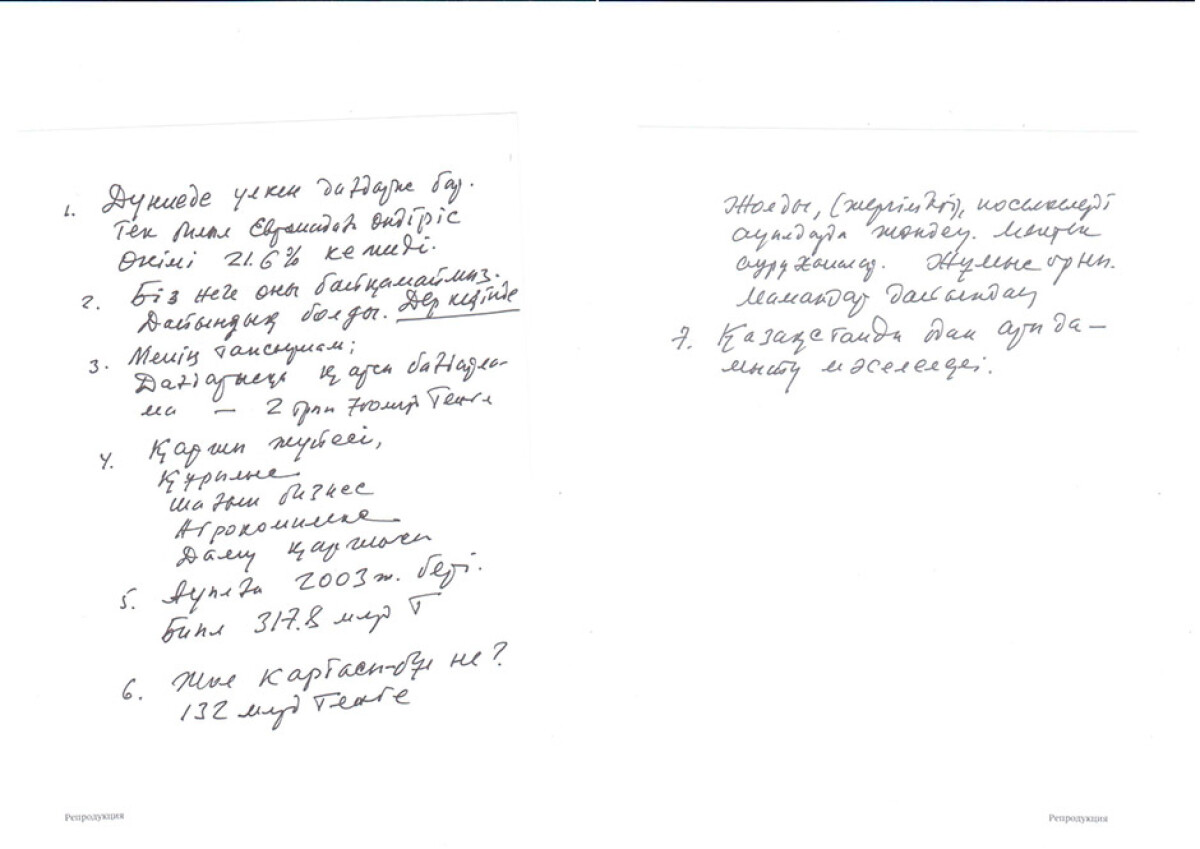 1. Дүниеде үлкен дағдарыс бар.
Тек биыл Евроодақта өндіріс
өкімі 21.6% кеміді.
2. Біз неге оны байқамаймыз.
Дайындық болды. Дер кезінде
3. Менің тапсырмам;
Дағдарысқа қарсы бағдарла-
ма — 2 трлн 700 млрд Теңге
4. Қаржы жүйесі,
Құрылыс
шағын бизнес
Агрокомплекс
Даму қаржысы
5. Ауылға 2003 ж. бері.
Биыл 317.8 млрд Т
6. Жол картасы-бұл не?
132 млрд Теңге
Репродукция
Жолды, (жергілікті),
ауылдарда жөндеу. Мектеп
ауруханалар. Жұмыс орны.
Мамандар дайындау
7. Қазақстанды одан ары да-
мыту мәселелері.
Репродукция